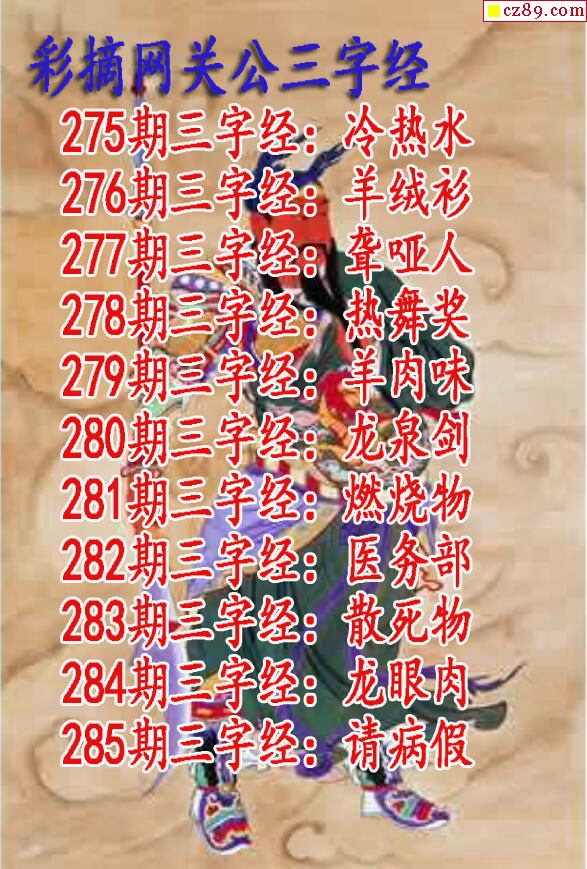 cz89.com
彩摘网关公三字经
275期三字经：冷热水
276期三字经：羊绒衫
277期三字经：聋哑人
278期三字经：热舞奖
279期三字经：羊肉味
280期三字经：龙泉剑
281期三字经：燃烧物
282期三字经：医务部
283期三字经：散死物
284期三字经：龙眼肉
285期三字经：请病假